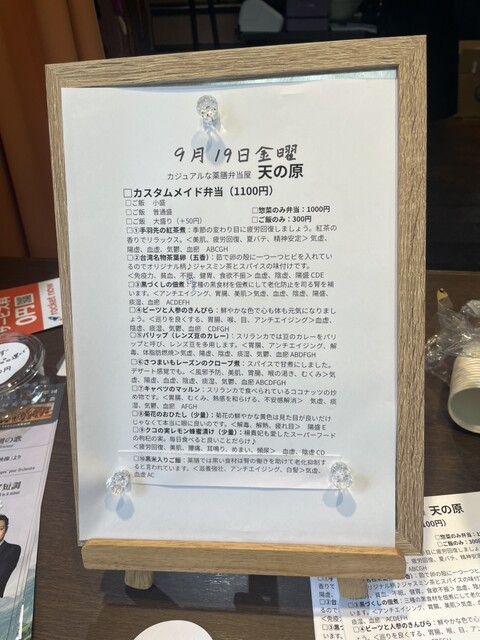 9月19日金曜
カジュアルな薬膳弁当屋 天の原
□カスタムメイド弁当（1100円）
□ご飯 小盛
□ご飯 普通盛 □惣菜のみ弁当：1000円
□ご飯 大盛り（+50円） □ご飯のみ：300円
□①手羽先の紅茶煮：季節の変わり目に疲労回復しましょう。紅茶の
香りでリラックス。＜美肌、疲労回復、夏バテ、精神安定＞気虚、
陽虚、血虚、気鬱、血瘀 ABCGH
□②台湾名物茶葉卵（五香）：茹で卵の殻に一つ一つヒビを入れてい
るのでオリジナル柄♪ジャスミン茶とスパイスの味付けです。
＜免疫力、貧血、不眠、健胃、食欲不振＞血虚、陰虚、陽盛 CDE
□③黒づくしの佃煮：三種の黒食材を佃煮にして老化防止を司る腎を補
います。＜アンチエイジング、胃腸、美肌＞気虚、血虚、陰虚、陽盛、
痰湿、血瘀 ACDEFH
□④ビーツと人参のきんぴら：鮮やかな色で心も体も元気になりまし
ょう。＜巡りを良くする、胃腸、喉、目、アンチエイジング＞血虚、
陰虚、痰湿、気鬱、血瘀 CDFGH
□⑤パリップ（レンズ豆のカレー）：スリランカでは豆のカレーをパリ
ップと呼び、レンズ豆を多用します。＜胃腸、アンチエイジング、解
毒、体脂肪燃焼＞気虚、陽虚、陰虚、痰湿、気鬱、血瘀 ABDFGH
□⑥さつまいもレーズンのクローブ煮：スパイスで甘煮にしました。
デザート感覚でも。＜風邪予防、美肌、胃腸、喉の渇き、むくみ＞気
虚、陽虚、血虚、陰虚、痰湿、気鬱、血瘀 ABCDFGH
□⑦キャベツのマッルン：スリランカで食べられているココナッツの炒
め物です。＜胃腸、むくみ、熱感を和らげる、不安感解消＞ 気虚、痰
湿、気鬱、血瘀 AFGH
□⑧菊花のおひたし（少量）：菊花の鮮やかな黄色は見た目が良いだけ
じゃなくて本当に眼に良いのです。＜解毒、解熱、疲れ目＞ 陽盛 E
□⑨クコの実レモン蜂蜜漬け（少量）：楊貴妃も愛したスーパーフード
の枸杞の実。毎日食べると良いことだらけ♪
＜疲労回復、美肌、腰痛、耳鳴り、めまい、頻尿＞ 血虚、陰虚 CD
□⑩黒米入りご飯：薬膳では黒い食材は腎の働きを助けて老化抑制す
ると言われています。＜滋養強壮、アンチエイジング、白髪＞気虚、
血虚 AC
天の原